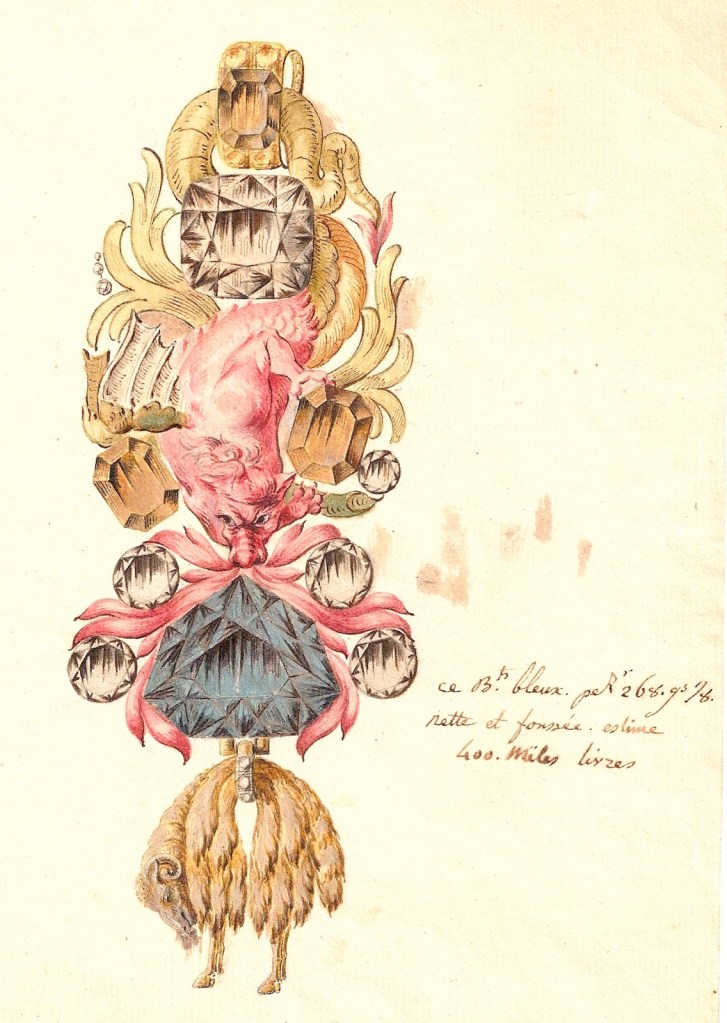 ce B.ts bleux. peR.r 268. gs 7/8.
nette et fonssée. estime
400. Miles livres